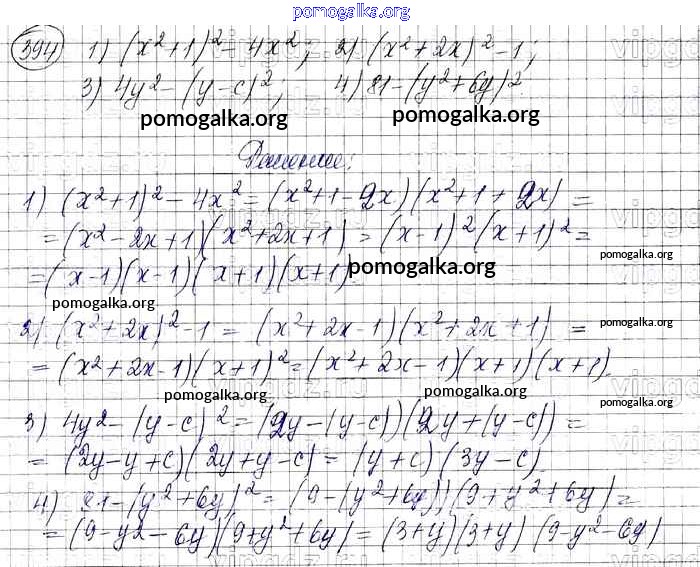 pomogalka.org
394) 1) (x²+1)² - 4x²; 2) (x²+2x)² - 1;
3) 4y² - (y-c)²; 4) 81 - (y²+6y)²
pomogalka.org pomogalka.org
Решение:
1) (x²+1)² - 4x² = (x²+1-2x)(x²+1+2x) =
= (x²-2x+1)(x²+2x+1) = (x-1)²(x+1)² =
pomogalka.org
= (x-1)(x-1)(x+1)(x+1)
pomogalka.org
pomogalka.org
2) (x²+2x)² - 1 = (x²+2x-1)(x²+2x+1) =
pomogalka.org
= (x²+2x-1)(x+1)² = (x²+2x-1)(x+1)(x+1).
pomogalka.org pomogalka.org
pomogalka.org
3) 4y² - (y-c)² = (2y-(y-c))(2y+(y-c)) =
= (2y-y+c)(2y+y-c) = (y+c)(3y-c)
4) 81 - (y²+6y)² = (9-(y²+6y))(9+y²+6y) =
= (9-y²-6y)(9+y²+6y) = (3+y)(3+y)(9-y²-6y)